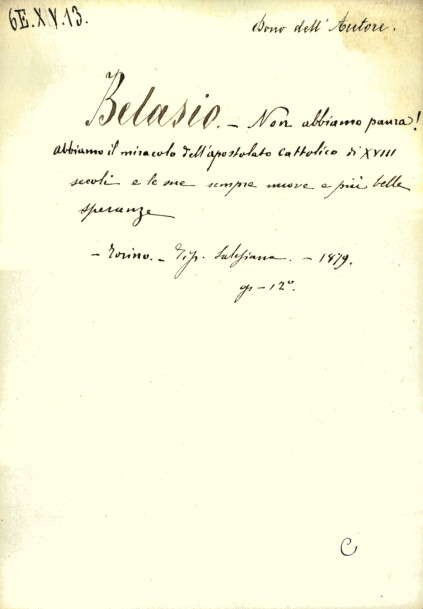 6E.XV.13.
Dono dell' Autore.
Belasio. — Non abbiamo paura!
abbiamo il miracolo dell'apostolato cattolico di XVIII
secoli e le sue sempre nuove e più belle
speranze
— Torino. — Tip. Salesiana. — 1879.
— 12°.
C